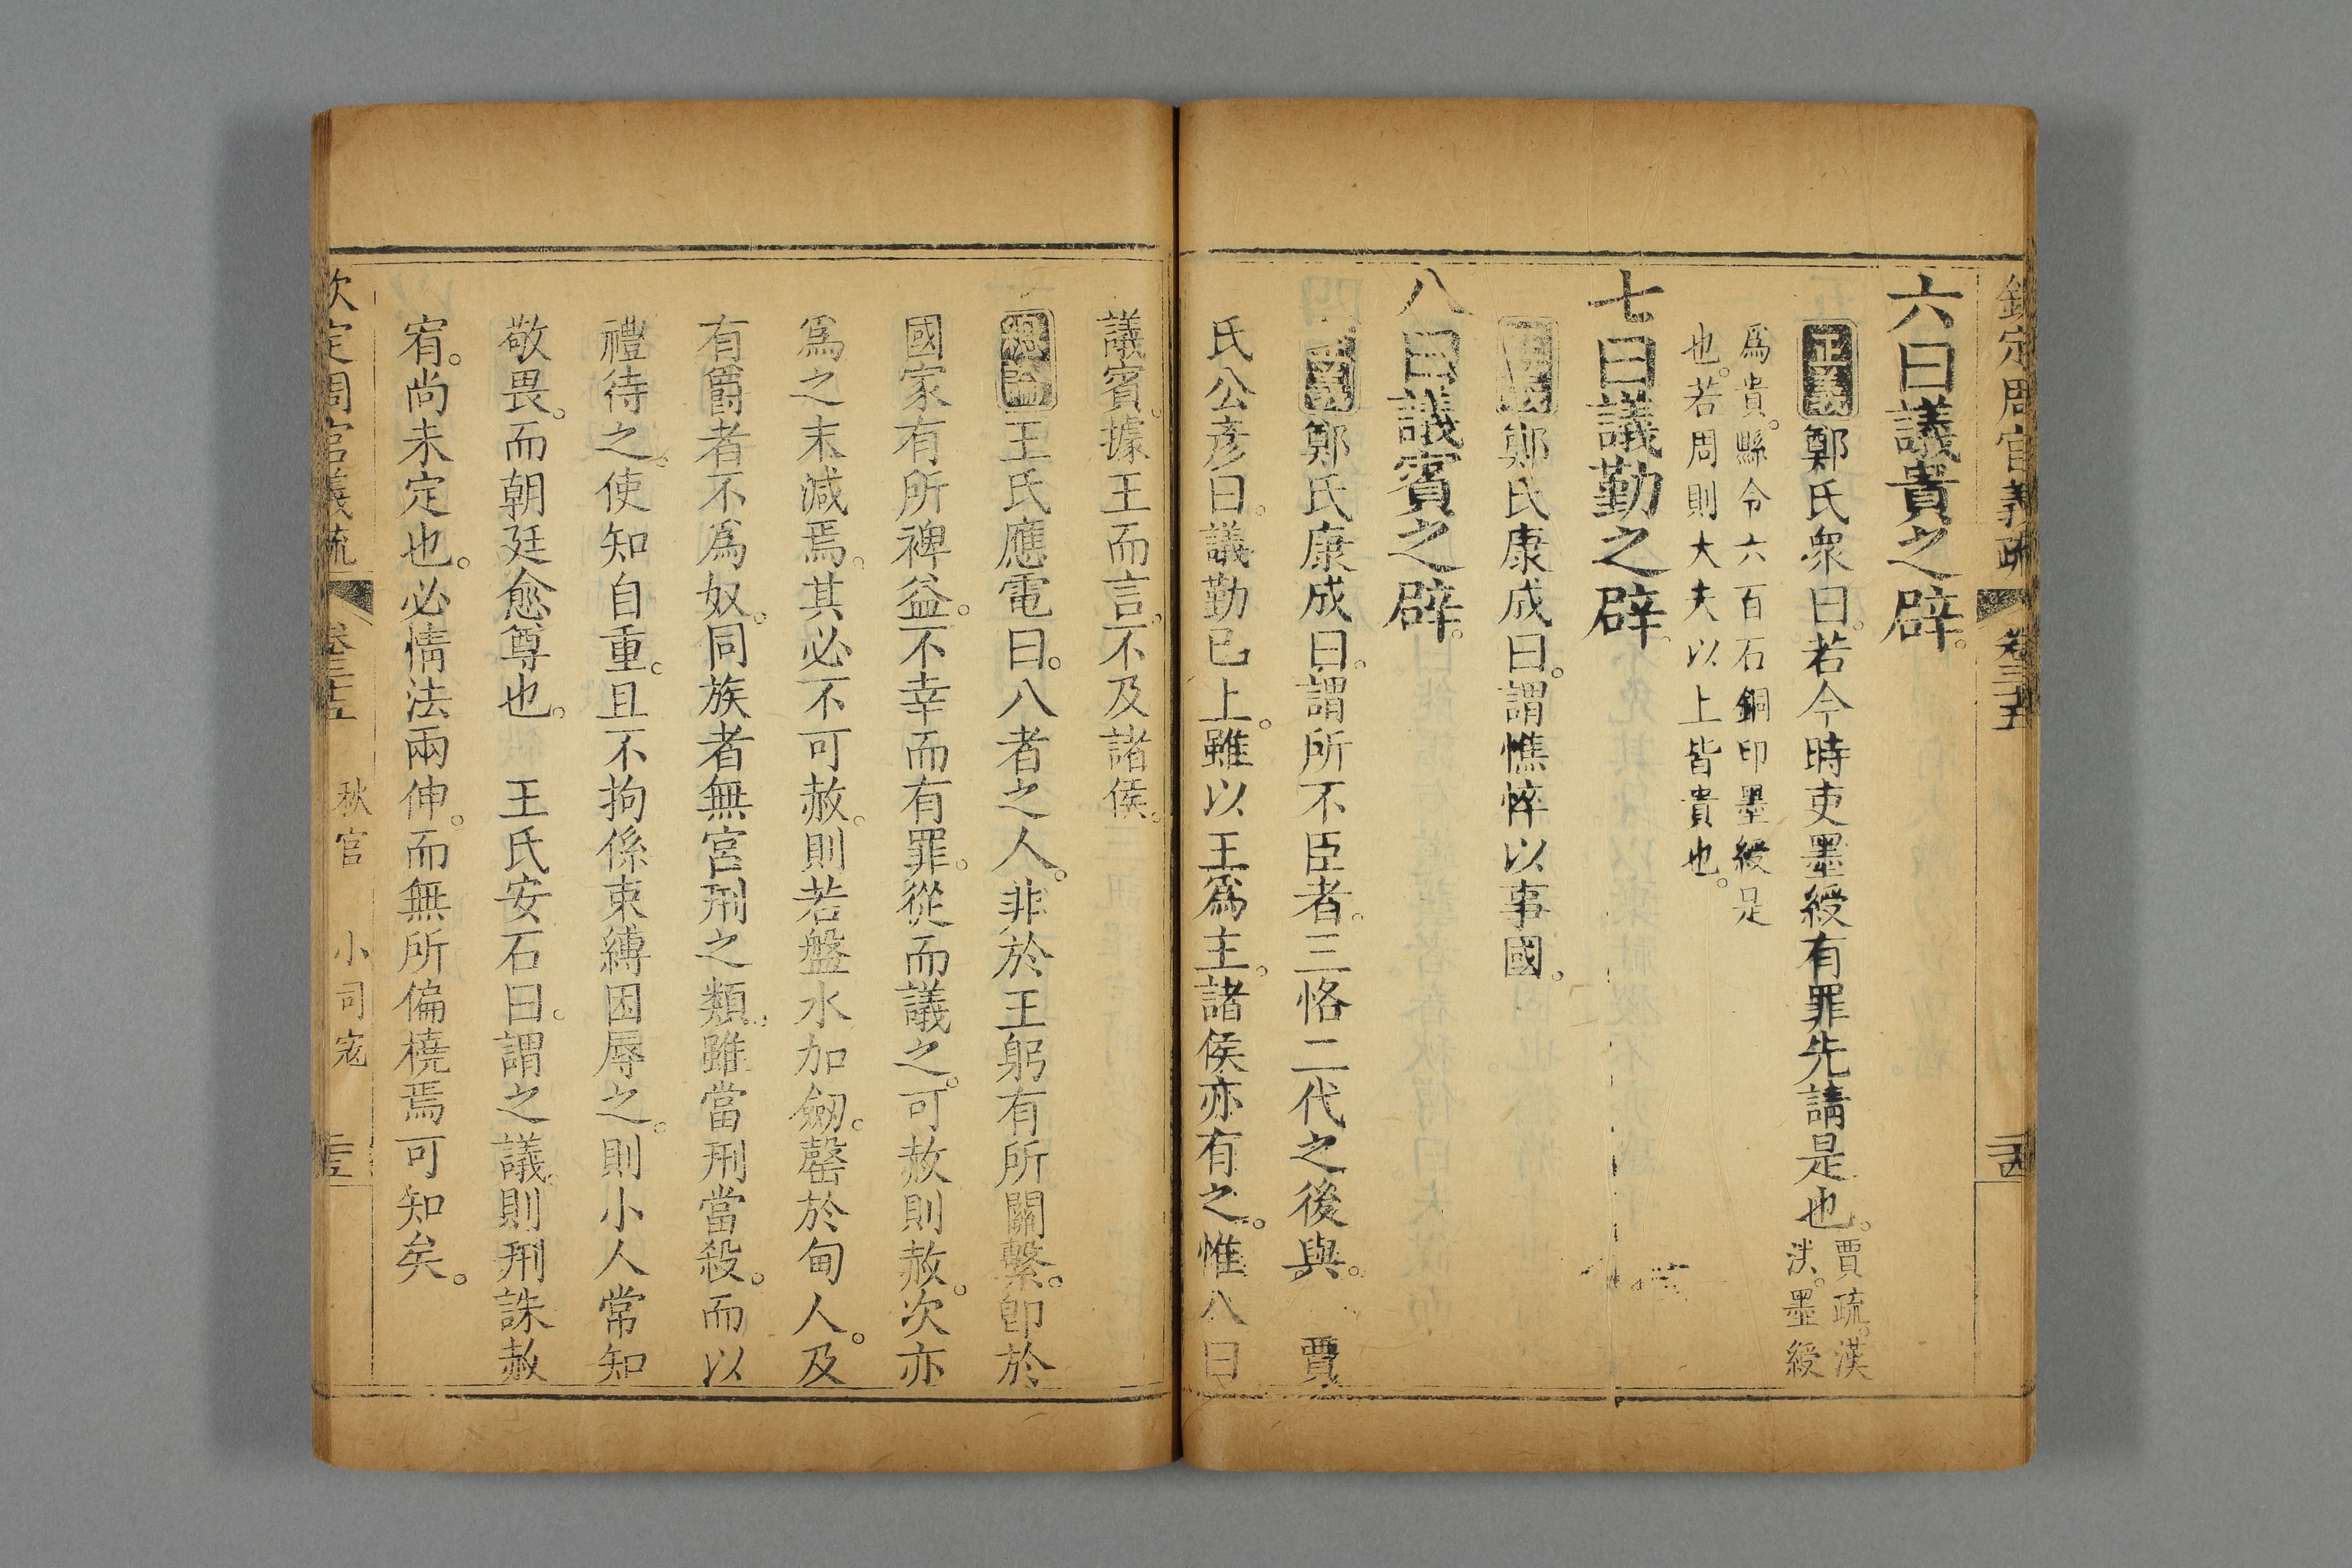 欽定周官義疏 卷三十五 二十四
六曰議貴之辟。
正義鄭氏衆曰。若今時吏墨綬有罪先請是也。賈疏。漢
法。墨綬
為貴。縣令六百石銅印墨綬是
也。若周則大夫以上皆貴也。
七曰議勤之辟。
正義鄭氏康成曰。謂憔悴以事國。
八曰議賓之辟。
正義鄭氏康成曰。謂所不臣者。三恪二代之後與。 賈
氏公彦曰。議勤已上。雖以王為主。諸侯亦有之。惟八曰
議賓。據王而言。不及諸侯。
總論王氏應電曰。八者之人。非於王躬有所關繫。卽於
國家有所裨益。不幸而有罪。從而議之。可赦則赦。次亦
為之末減焉。其必不可赦。則若盤水加劒。罄於甸人。及
有爵者不為奴。同族者無宮刑之類。雖當刑當殺。而以
禮待之。使知自重。且不拘係束縛困辱之。則小人常知
敬畏。而朝廷愈尊也。 王氏安石曰。謂之議。則刑誅赦
宥。尚未定也。必情法兩伸。而無所偏橈焉可知矣。
欽定周官義疏 卷三十五 秋官 小司寇 二十五